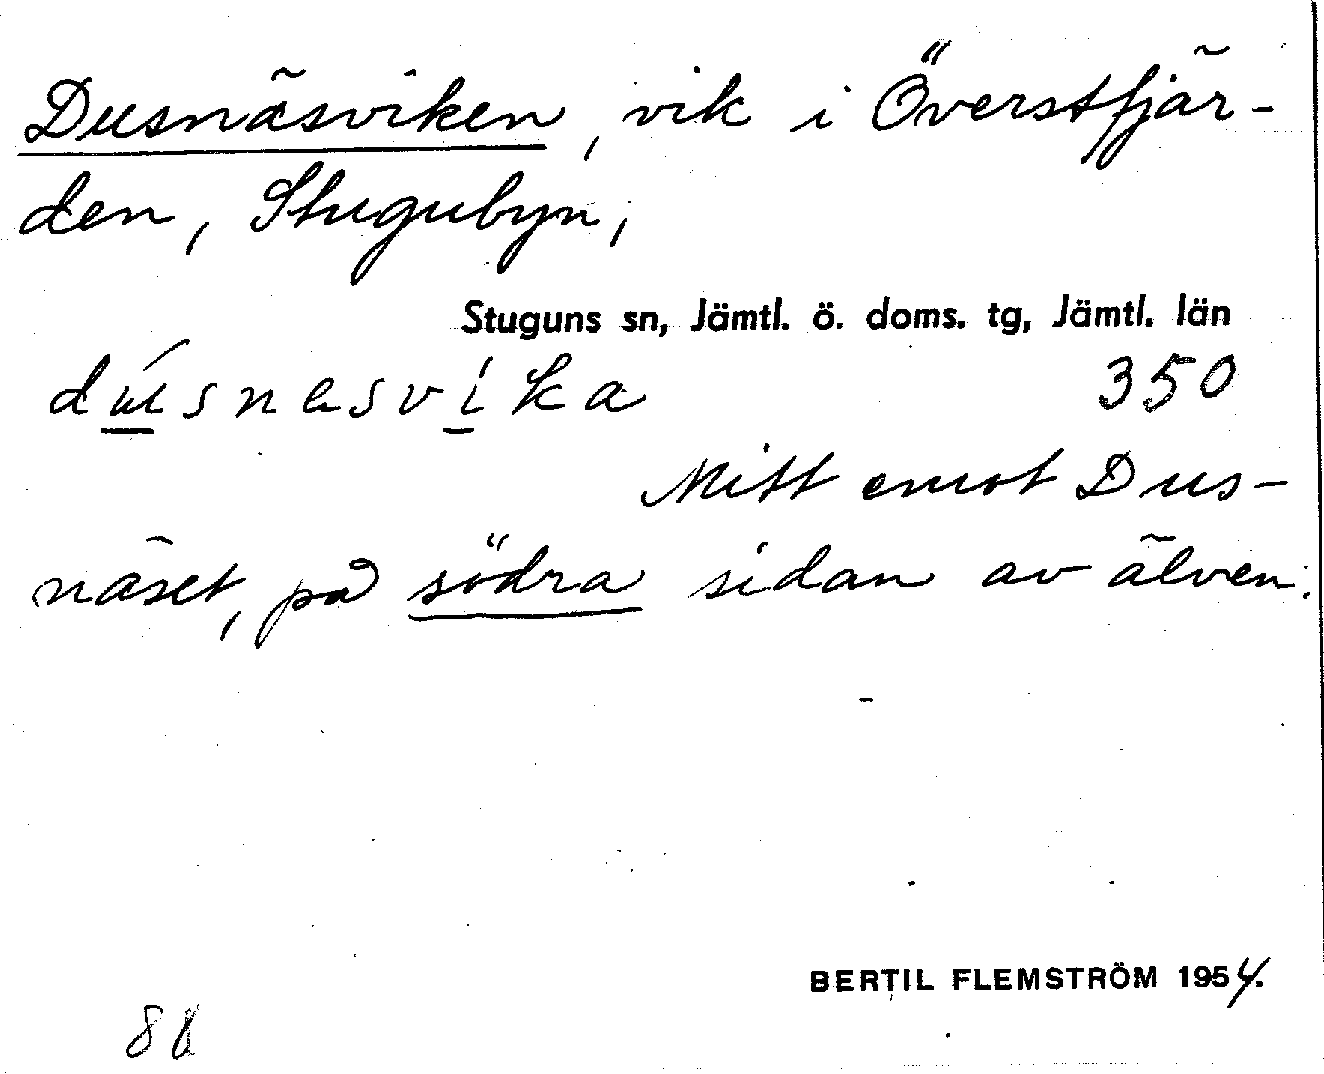 Dusnäsviken, vik i Överstfjär-
den, Stugubyn,
Stuguns sn, Jämtl. ö. doms. tg, Jämtl. län
dúsnesvika 350
Mitt emot Dus-
näset, på södra sidan av älven.
BERTIL FLEMSTRÖM 1954.